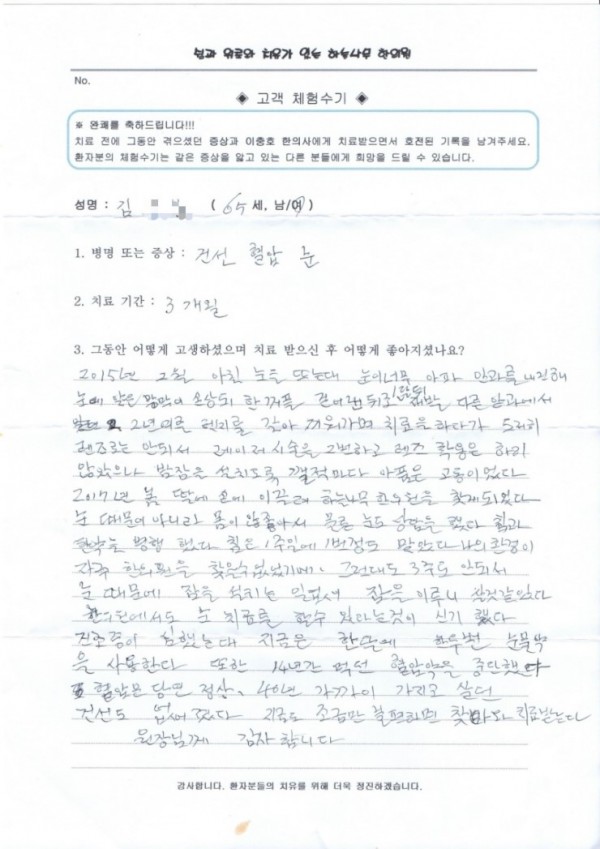 No.
◈ 고객 체험수기 ◈
※ 완쾌를 축하드립니다!!!
치료 전에 그동안 겪으셨던 증상과 이종호 한의사에게 치료받으면서 호전된 기록을 남겨주세요.
환자분의 체험수기는 같은 증상을 앓고 있는 다른 분들에게 희망을 드릴 수 있습니다.
성명 : 김 ( 65 세, 남/여 )
1. 병명 또는 증상 : 건선 혈압 눈
2. 치료 기간 : 3개월
3. 그동안 어떻게 고생하셨으며 치료 받으신 후 어떻게 좋아지셨나요?
2015년 2월 아침 눈을 뜨는데 눈이 너무 아파 안과를
눈에 각막이 손상되 한꺼풀 다른 안과에서
2년여를 렌즈를 끼워가며 치료를 하다가
렌즈로는 안되서 레이저 시술을 2번하고 렌즈 착용은 하지
않았으나 밤잠을 설치도록 깰적마다 아픔은 고통이었다
2017년 봄 딸에 손에 이끌려 하늘나무 한의원을 찾게되었다
눈 때문에 아니라 몸이 안좋아서 물론 눈도 상담을 했다 침과
한약을 병행 했다 침은 1주일에 1번정도 맞았다 나의 환경이
자주 한의원을 찾을수 없었기에. 그런대도 3주도 안되서
눈 때문에 잠을 설치는 일없서 잠을 이루니 살것같았다
한의원에서도 눈 치료를 할수 있다는것이 신기 했다
건조증이 심했는데 지금은 한달에 한두번 눈물약
을 사용한다 또한 14년간 먹던 혈압약을 중단했다
혈압은 당연 정상. 40년 가까이 가지고 살던
건선도 없서 졌다 지금도 조금만 불편하면 찾아와 치료받는다
원장님께 감사 합니다
감사합니다. 환자분들의 치유를 위해 더욱 정진하겠습니다.